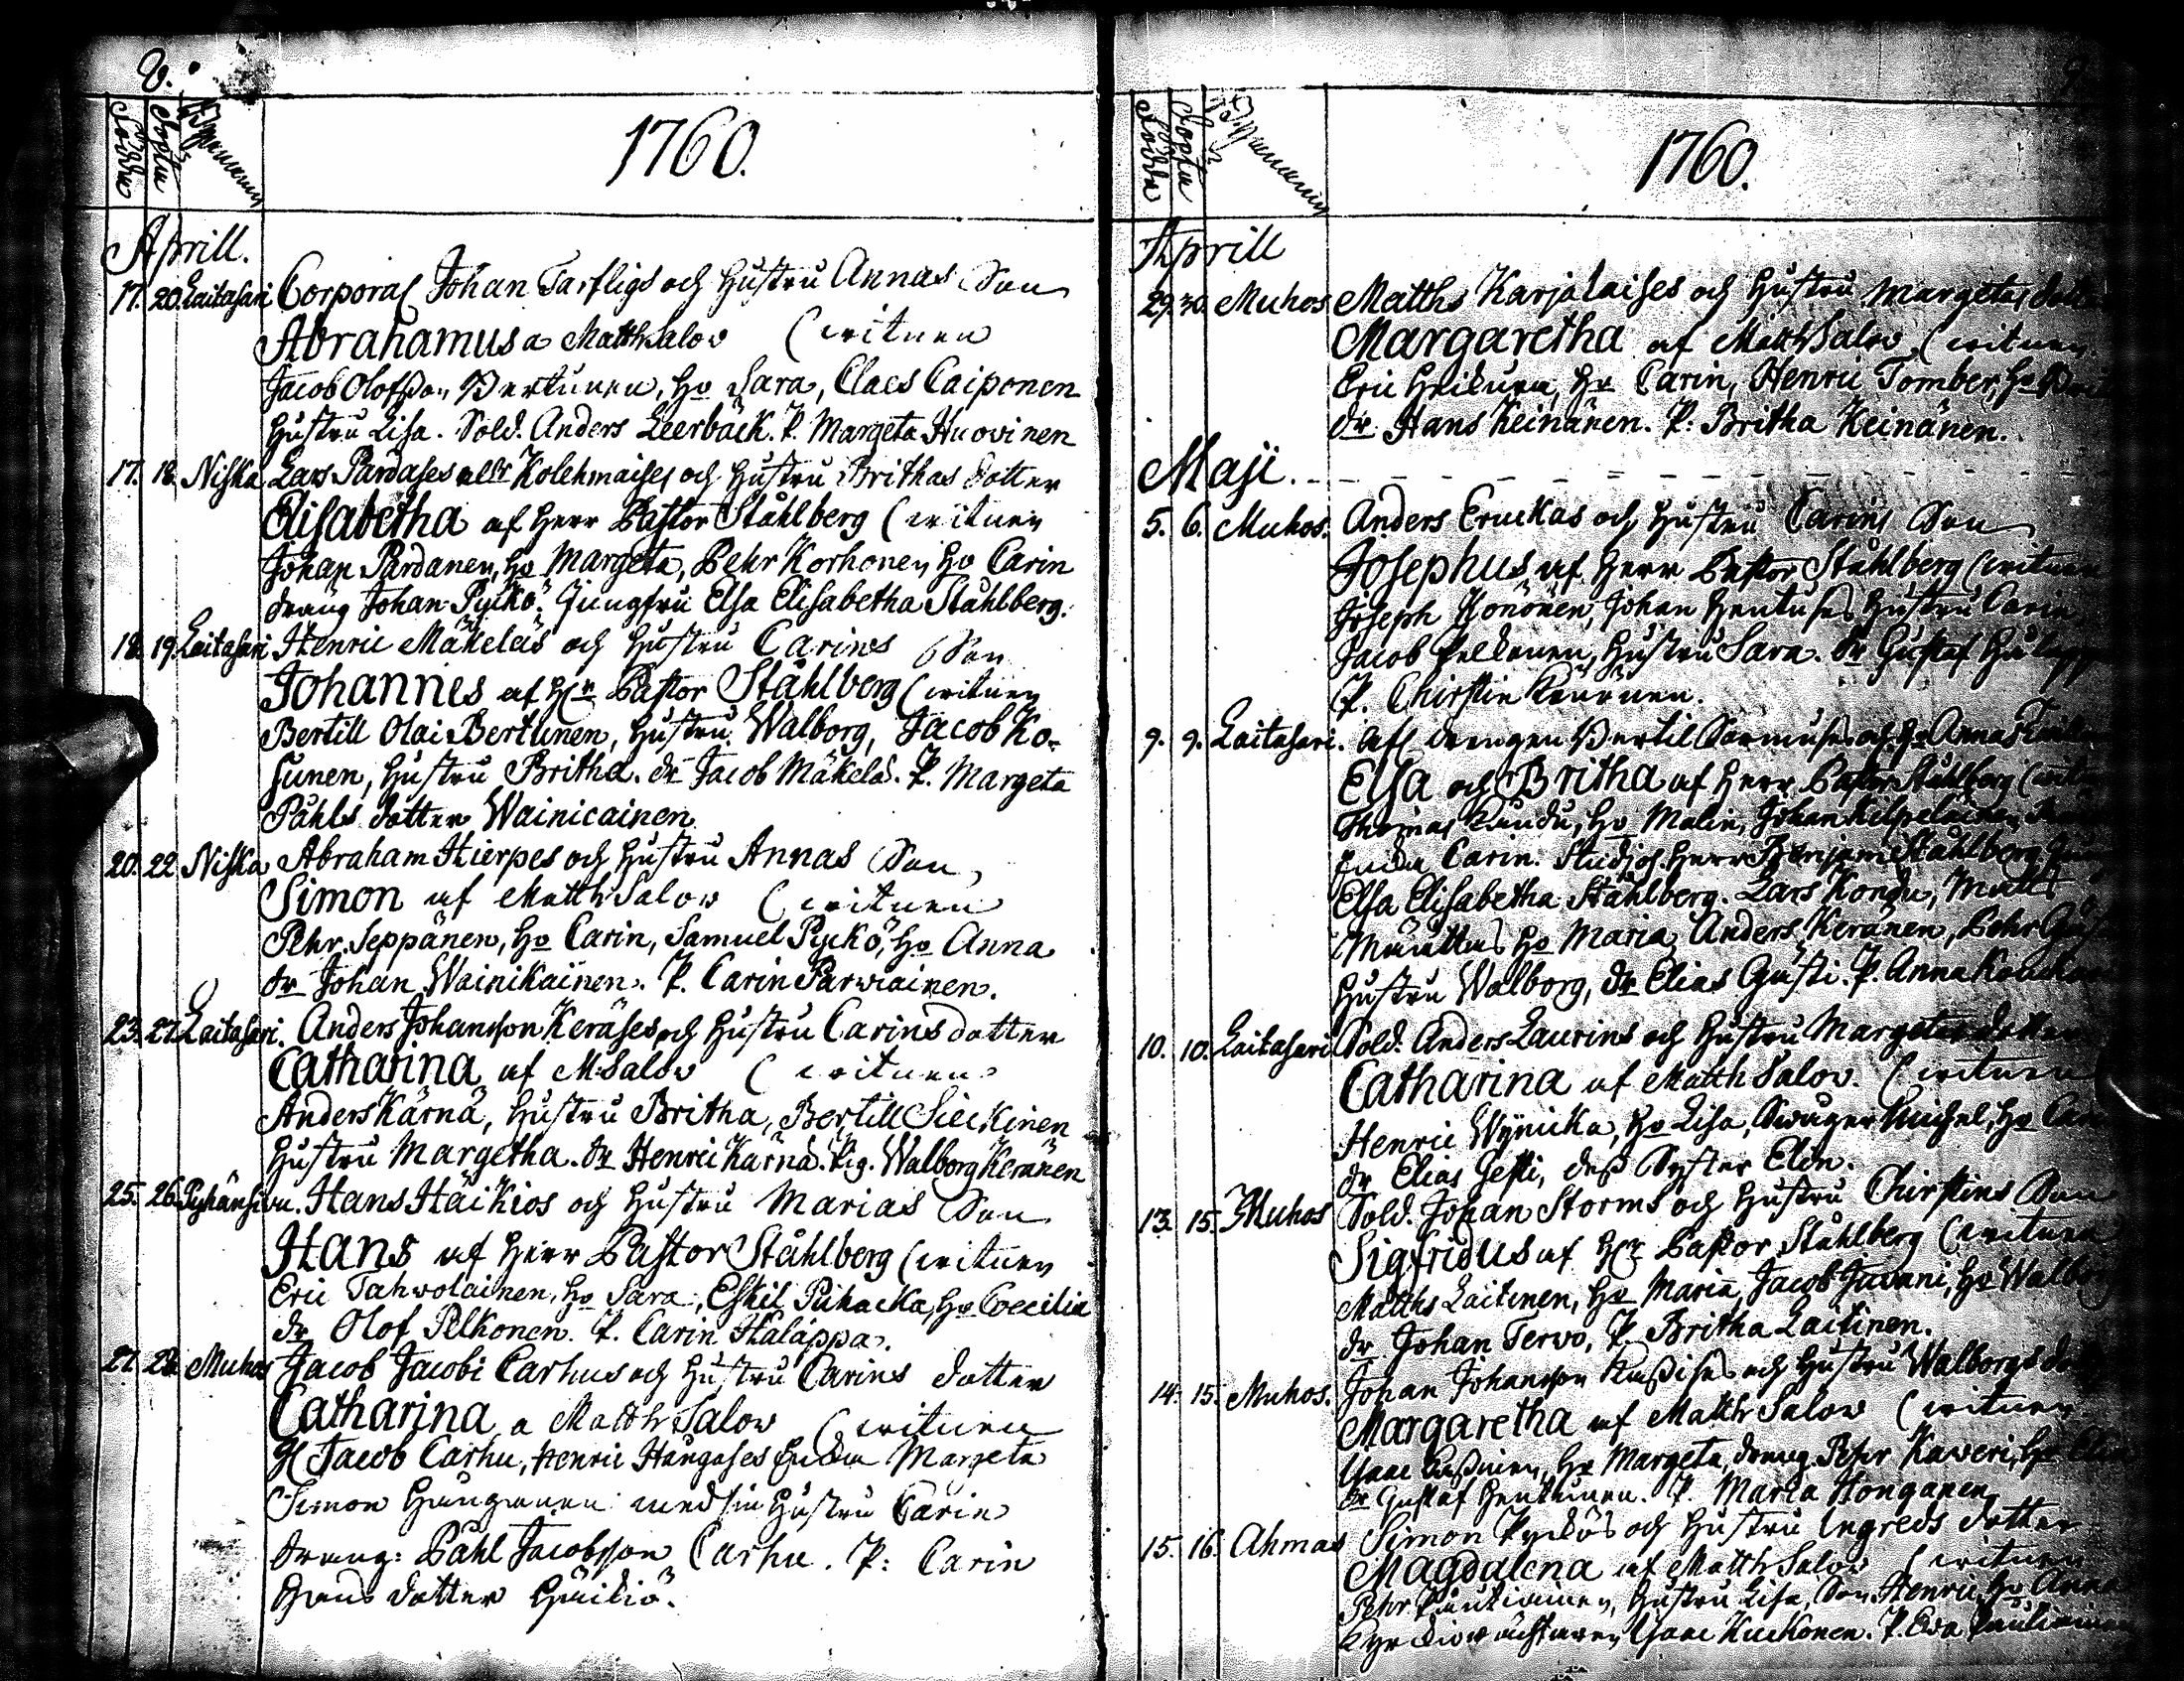 8.
Födde
Döpte
Byemann
1760.
Aprill.
17. 20. Laitasari Corporal Johan Tarfligs och hustru Annas Son
Abrahamus a Matth Salov (vitnen
Jacob Olofsson Bertunen, ho Sara, Claes Caiponen
hustru Lisa. Sold. Anders Leerbäck. P. Margeta Huovinen
17. 18. Niska Lars Pardases allr Kolehmaises och hustru Brithas dotter
Elisabetha af Herr Pastor Ståhlberg (vitnen
Johan Pardanen, ho Margeta, Pehr Korhonen ho Carin
dräng Johan Pyckö. Jungfru Elsa Elisabetha Ståhlberg.
18. 19. Laitasari Henric Mäkeläs och hustru Carins Son
Johannes af Hr Pastor Ståhlberg (vitnen
Bertill Olai Bertunen, hustru Walborg, Jacob Ko-
sunen, hustru Britha. dr Jacob Mäkelä. P. Margeta
Påhls dotter Wainicainen
20. 22 Niska Abraham Hierpes och hustru Annas Son
Simon af Matth Salov (vitnen
Pehr Seppänen, ho Carin, Samuel Pyckö, ho Anna
dr Johan Wainikainen. P. Carin Parviainen.
23. 27. Laitasari. Anders Johansson Keräses och hustru Carins dotter
Catharina af M Salov (vitnen
Anders Kärnä, hustru Britha, Bertill Sieckinen
hustru Margetha. dr Henric Kärnä. Pig. Walborg Keränen
25. 26. Hans Häikiös och hustru Marias Son
Hans af Herr Pastor Ståhlberg (vitnen
Eric Tahvolainen, ho Sara, Eskil Pihacka, ho Coecilia
dr Olof Pelkonen. P. Carin Halappa.
27. 28. Muhos Jacob Jacobi Carhus och hustru Carins dotter
Catharina a Matth Salov (vitnen
Jacob Carhu, Henric Hangases Enka Margeta
Simon Hanganen med sin hustru Carin
dräng: Påhl Jacobsson Carhu. P: Carin
Hans dotter Häikiö.
9.
Födde
Döpte
Byemann
1760.
Aprill
29. 30. Muhos Matths Karjalaises och hustru Margetas
Margaretha af Matth Salov (vitnen
Eric ho Carin, Henric Tomber, ho
dr Hans Keinänen. P: Britha Keinänen.
Maji.
5. 6. Muhos. Anders Eruckas och hustru Carins Son
Josephus af Herr Pastor Ståhlberg (vitnen
Joseph Konönen, Johan Hentuses hustru Carin
Jacob Pelkonen, hustru Sara. dr Gustaf
P. Chirstin Konönen.
9. 9. Laitasari. drengen Bertil Sormuses och ho Annas
Elsa och Britha af Herr Pastor Ståhlberg
Thomas ho Malin, Johan Kilpelainen
Enka Carin. Studios. Herr Ståhlberg
Elsa Elisabetha Ståhlberg. Lars Kondu, Matts
ho Maria Anders Keränen, Pehr
hustru Walborg, dr Elias Gusti. P. Anna
10. 10. Laitasari Sold. Anders Laurins och hustru Margetas dotter
Catharina af Matth Salov. (vitnen
Henric Wynicka, ho Lisa, Swåger Michel, ho
dr Elias Gesti, dess Syster Elin.
13. 15. Muhos Sold. Johan Storms och hustru Chirstins Son
Sigfridus af Hr Pastor Ståhlberg (vitnen
Matths Laitinen, ho Maria, Jacob Juvani, ho Walborg
dr Johan Tervo, P. Britha Laitinen.
14. 15. Muhos. Johan Johansson och hustru Walborgs
Margaretha af Matth Salov (vitnen
ho Margeta, dreng Pehr Kaveri, ho
dr Gustaf Hentunen. P. Maria Honganen
15. 16. Ahmas Simon Pyckös och hustru Ingreds dotter
Magdalena af Matth Salov (vitnen
Pehr hustru Lisa, Son Henric, ho Anna
Isaac Kuckonen. P. Eva